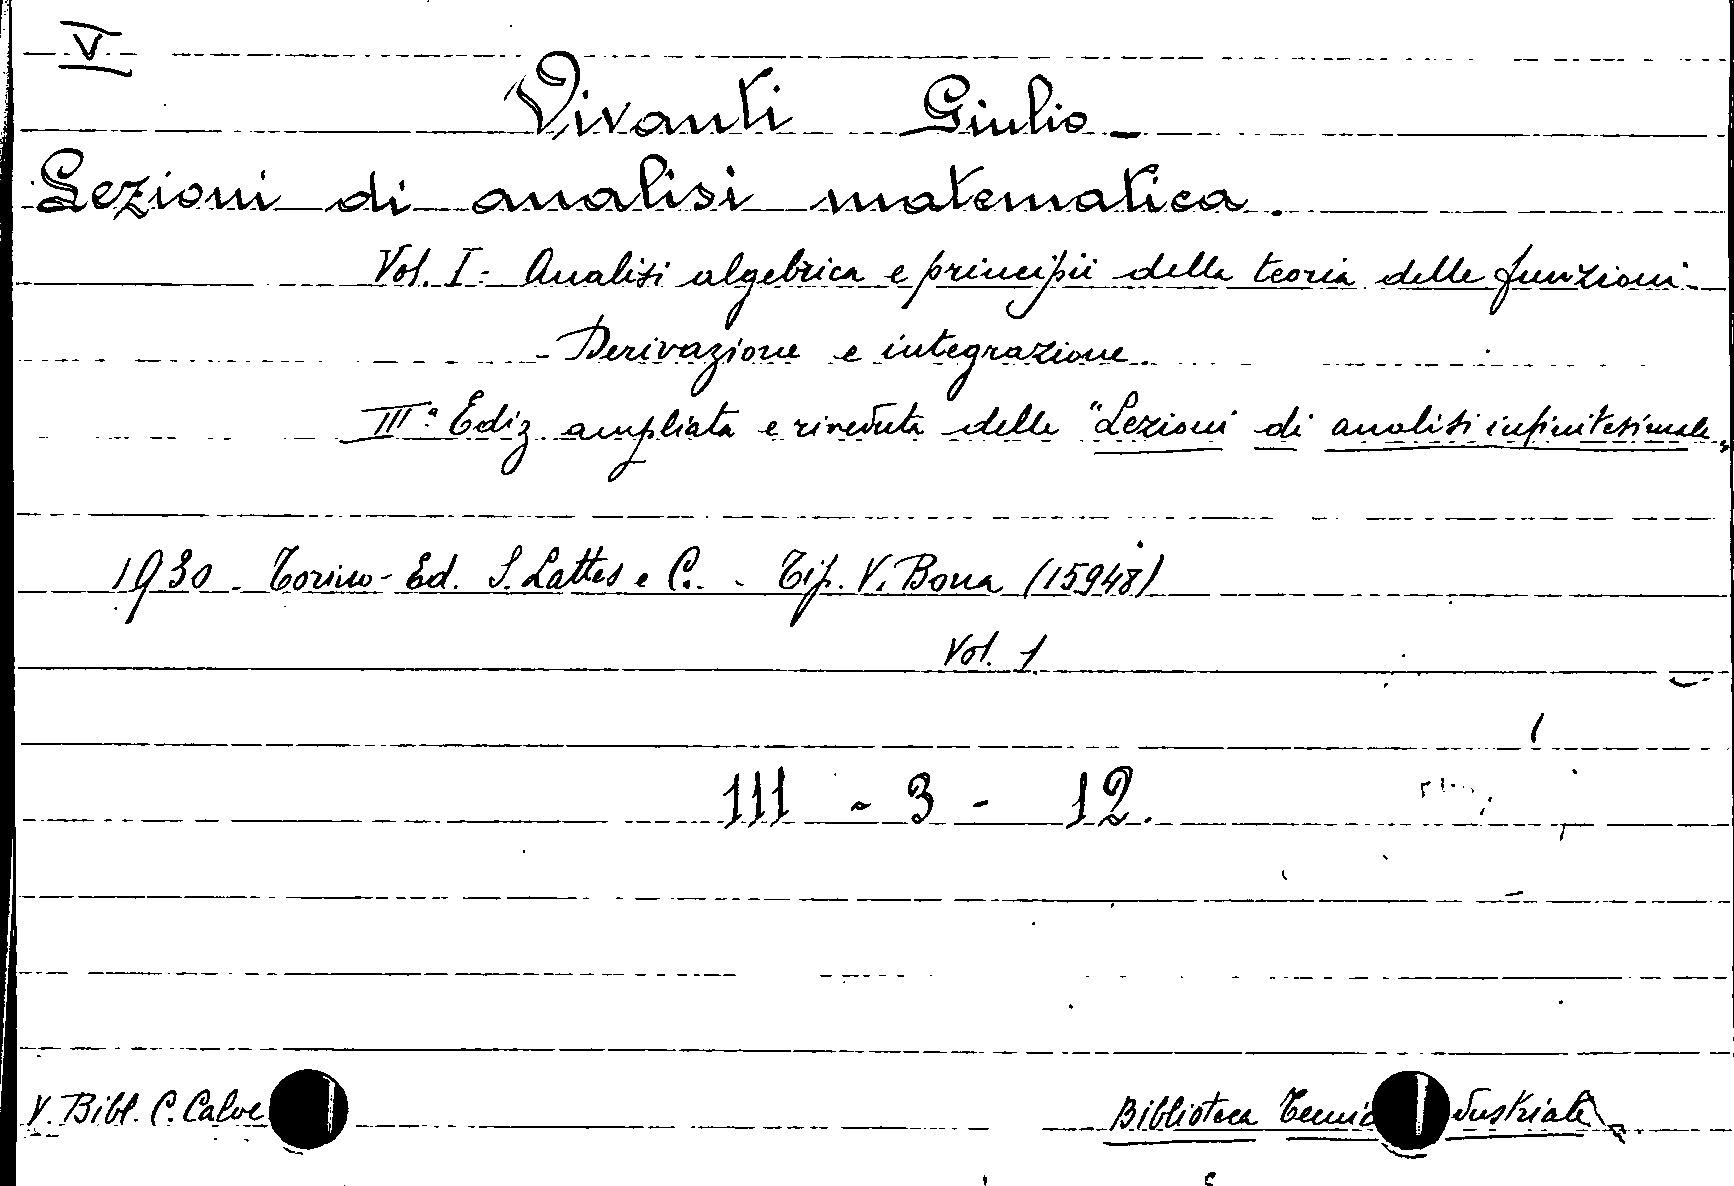 V
Vivanti Giulio -
Lezioni di analisi matematica.
Vol. I: Analisi algebrica e principii della teoria delle funzioni -
- Derivazione e integrazione.
IIIª Ediz ampliata e riveduta delle "Lezioni di analisi infinitesimale"
1930 - Torino - Ed. S. Lattes e C. - Tip. V. Bona (15948)
Vol. 1
III - 3 - 12.
V. Bibl. C. Calve
Biblioteca Tecnic dustriale